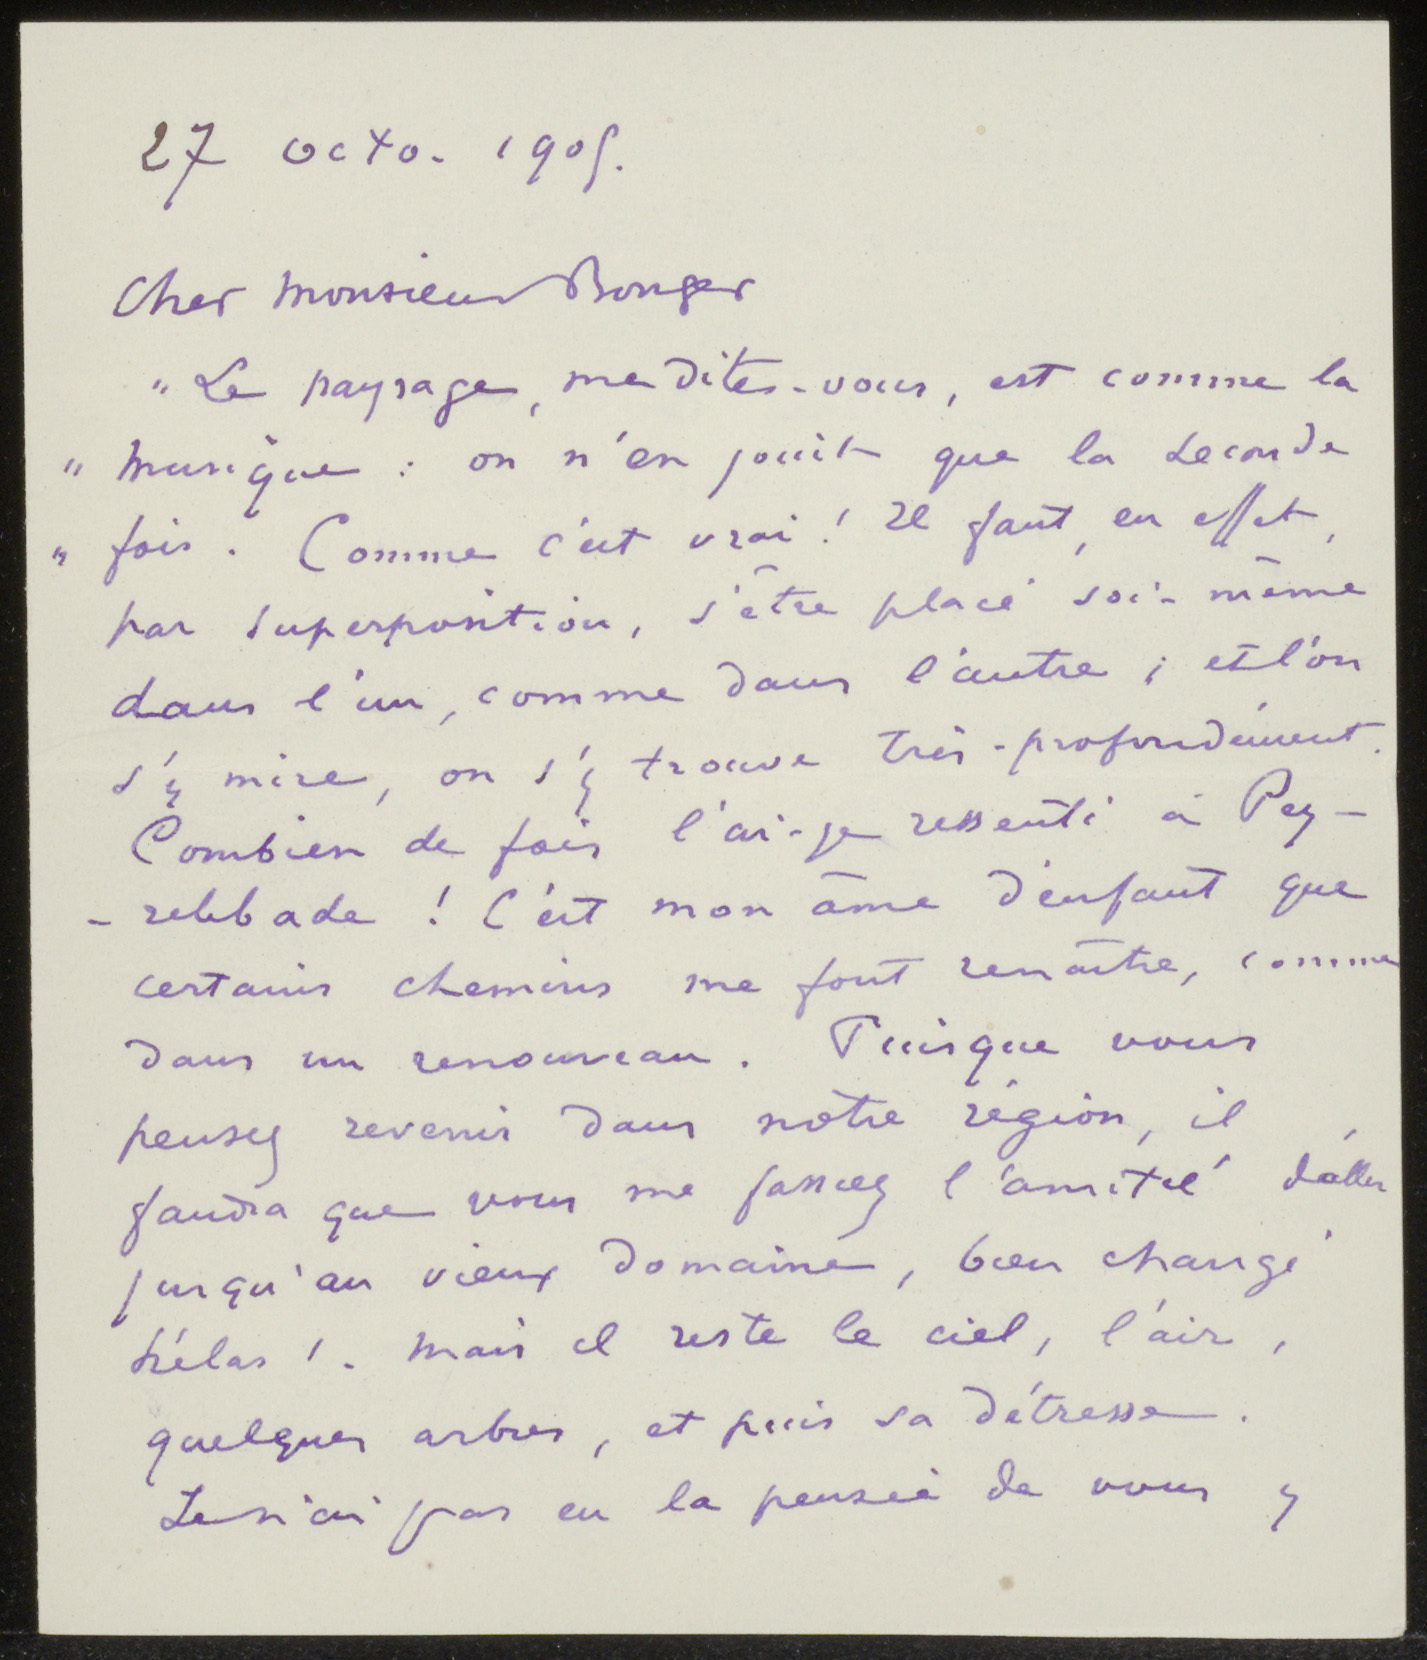 27 octo. 1905.
Cher Monsieur Bonger
"Le paysage, me dites-vous, est comme la
" musique : on n'en jouit que la seconde
" fois. Comme c'est vrai ! Il faut, en effet,
par superposition, s'être placé soi-même
dans l'un, comme dans l'autre ; et l'on
s'y mire, on s'y trouve très-profondément.
Combien de fois l'ai-je ressenti à Pey-
-relebade ! C'est mon âme d'enfant que
certains chemins me font renaître, comme
dans un renouveau. Puisque vous
pensez revenir dans nôtre région, il
faudra que vous me fassiez l'amitié d'aller
jusqu'au vieux domaine, bien changé
hélas ! - Mais il reste le ciel, l'air,
quelques arbres, et puis sa détresse.
Je n'ai pas eu la pensée de vous y